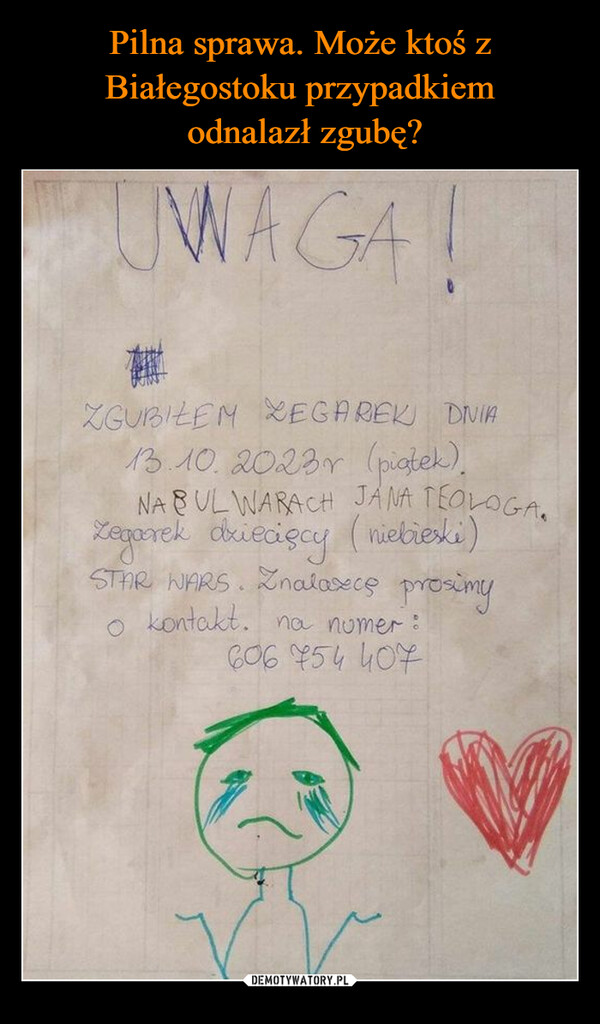 Pilna sprawa. Może ktoś z
Białegostoku przypadkiem
odnalazł zgubę?
UWAGA!
ZGUBIŁEM ZEGAREK DNIA
13.10.2023r (piątek).
NA BULWARACH JANA TEOLOGA.
Zegarek dziecięcy (niebieski)
STAR WARS. Znalazcę prosimy
o kontakt. na numer:
606 754 407
DEMOTYWATORY.PL